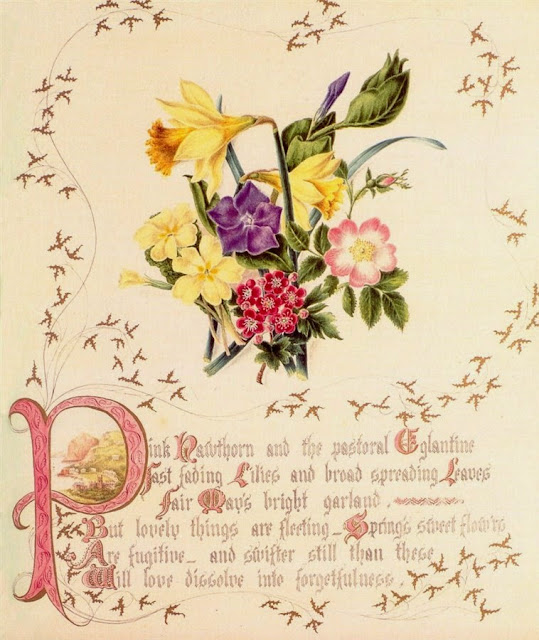 Pink Hawthorn and the pastoral Eglantine
Fast fading Lilies and broad spreading Leaves
Fair May's bright garland.
But lovely things are fleeting_ Spring's sweet flow'rs
Are fugitive_ and swifter still than these
Will love dissolve into forgetfulness.